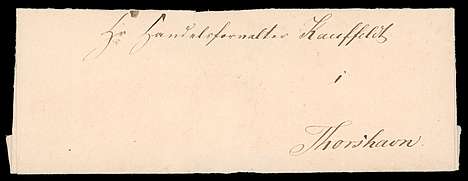 Hr Handelsforvalter Kauffeldt
i
Thorshavn.